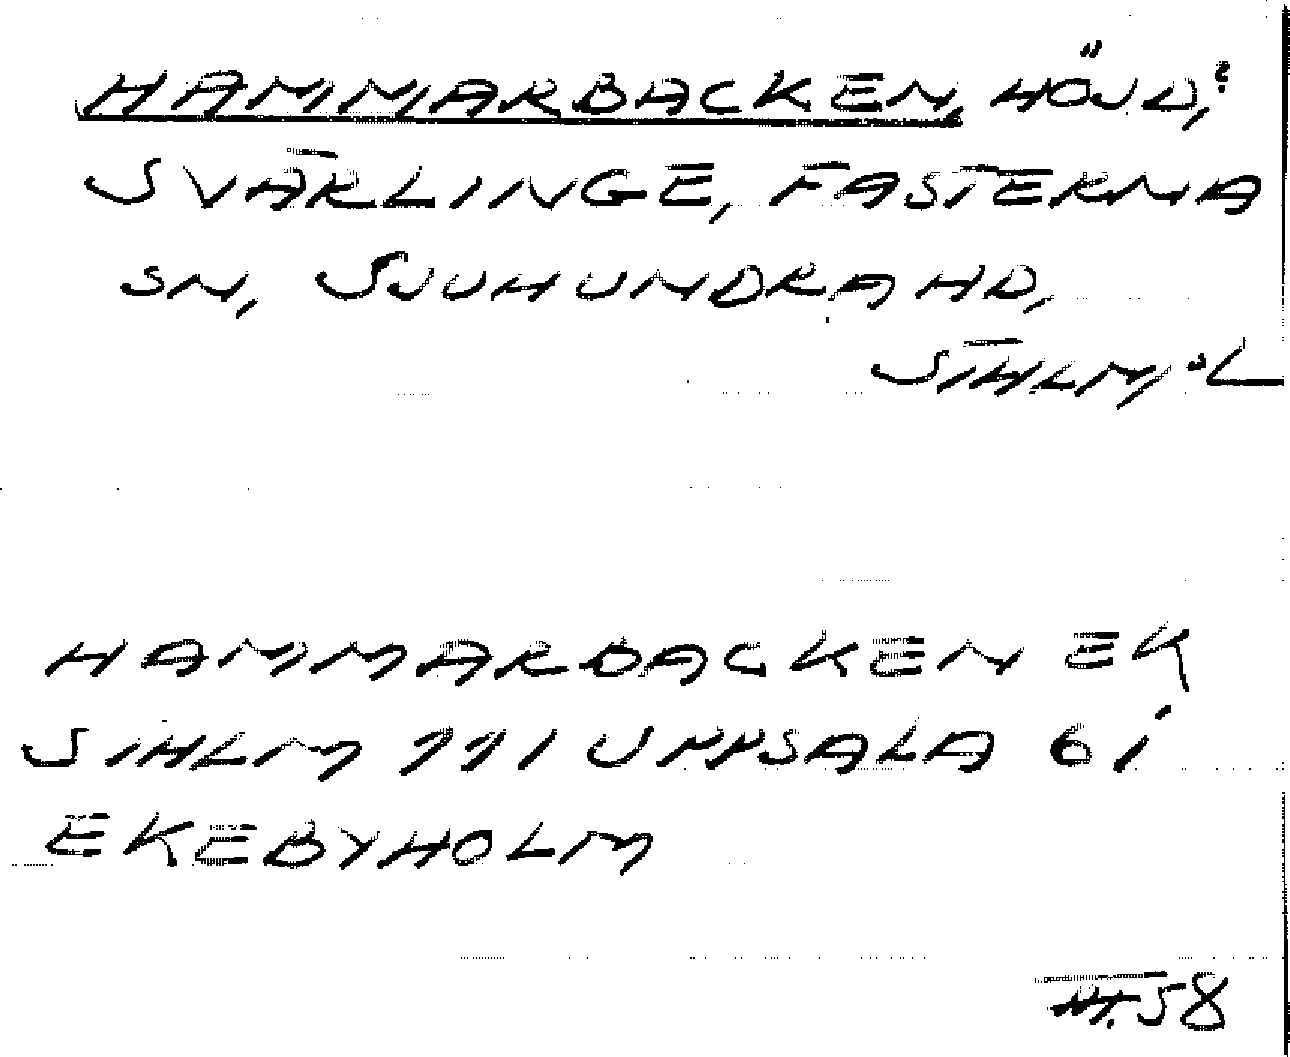 HAMMARBACKEN, HÖJD,?
SVÄRLINGE, FASTERNA
SN, SJUHUNDRA HD,
STHLM, L
HAMMARBACKEN EK
STHLM 111 UPPSALA 6 I
EKEBYHOLM
58